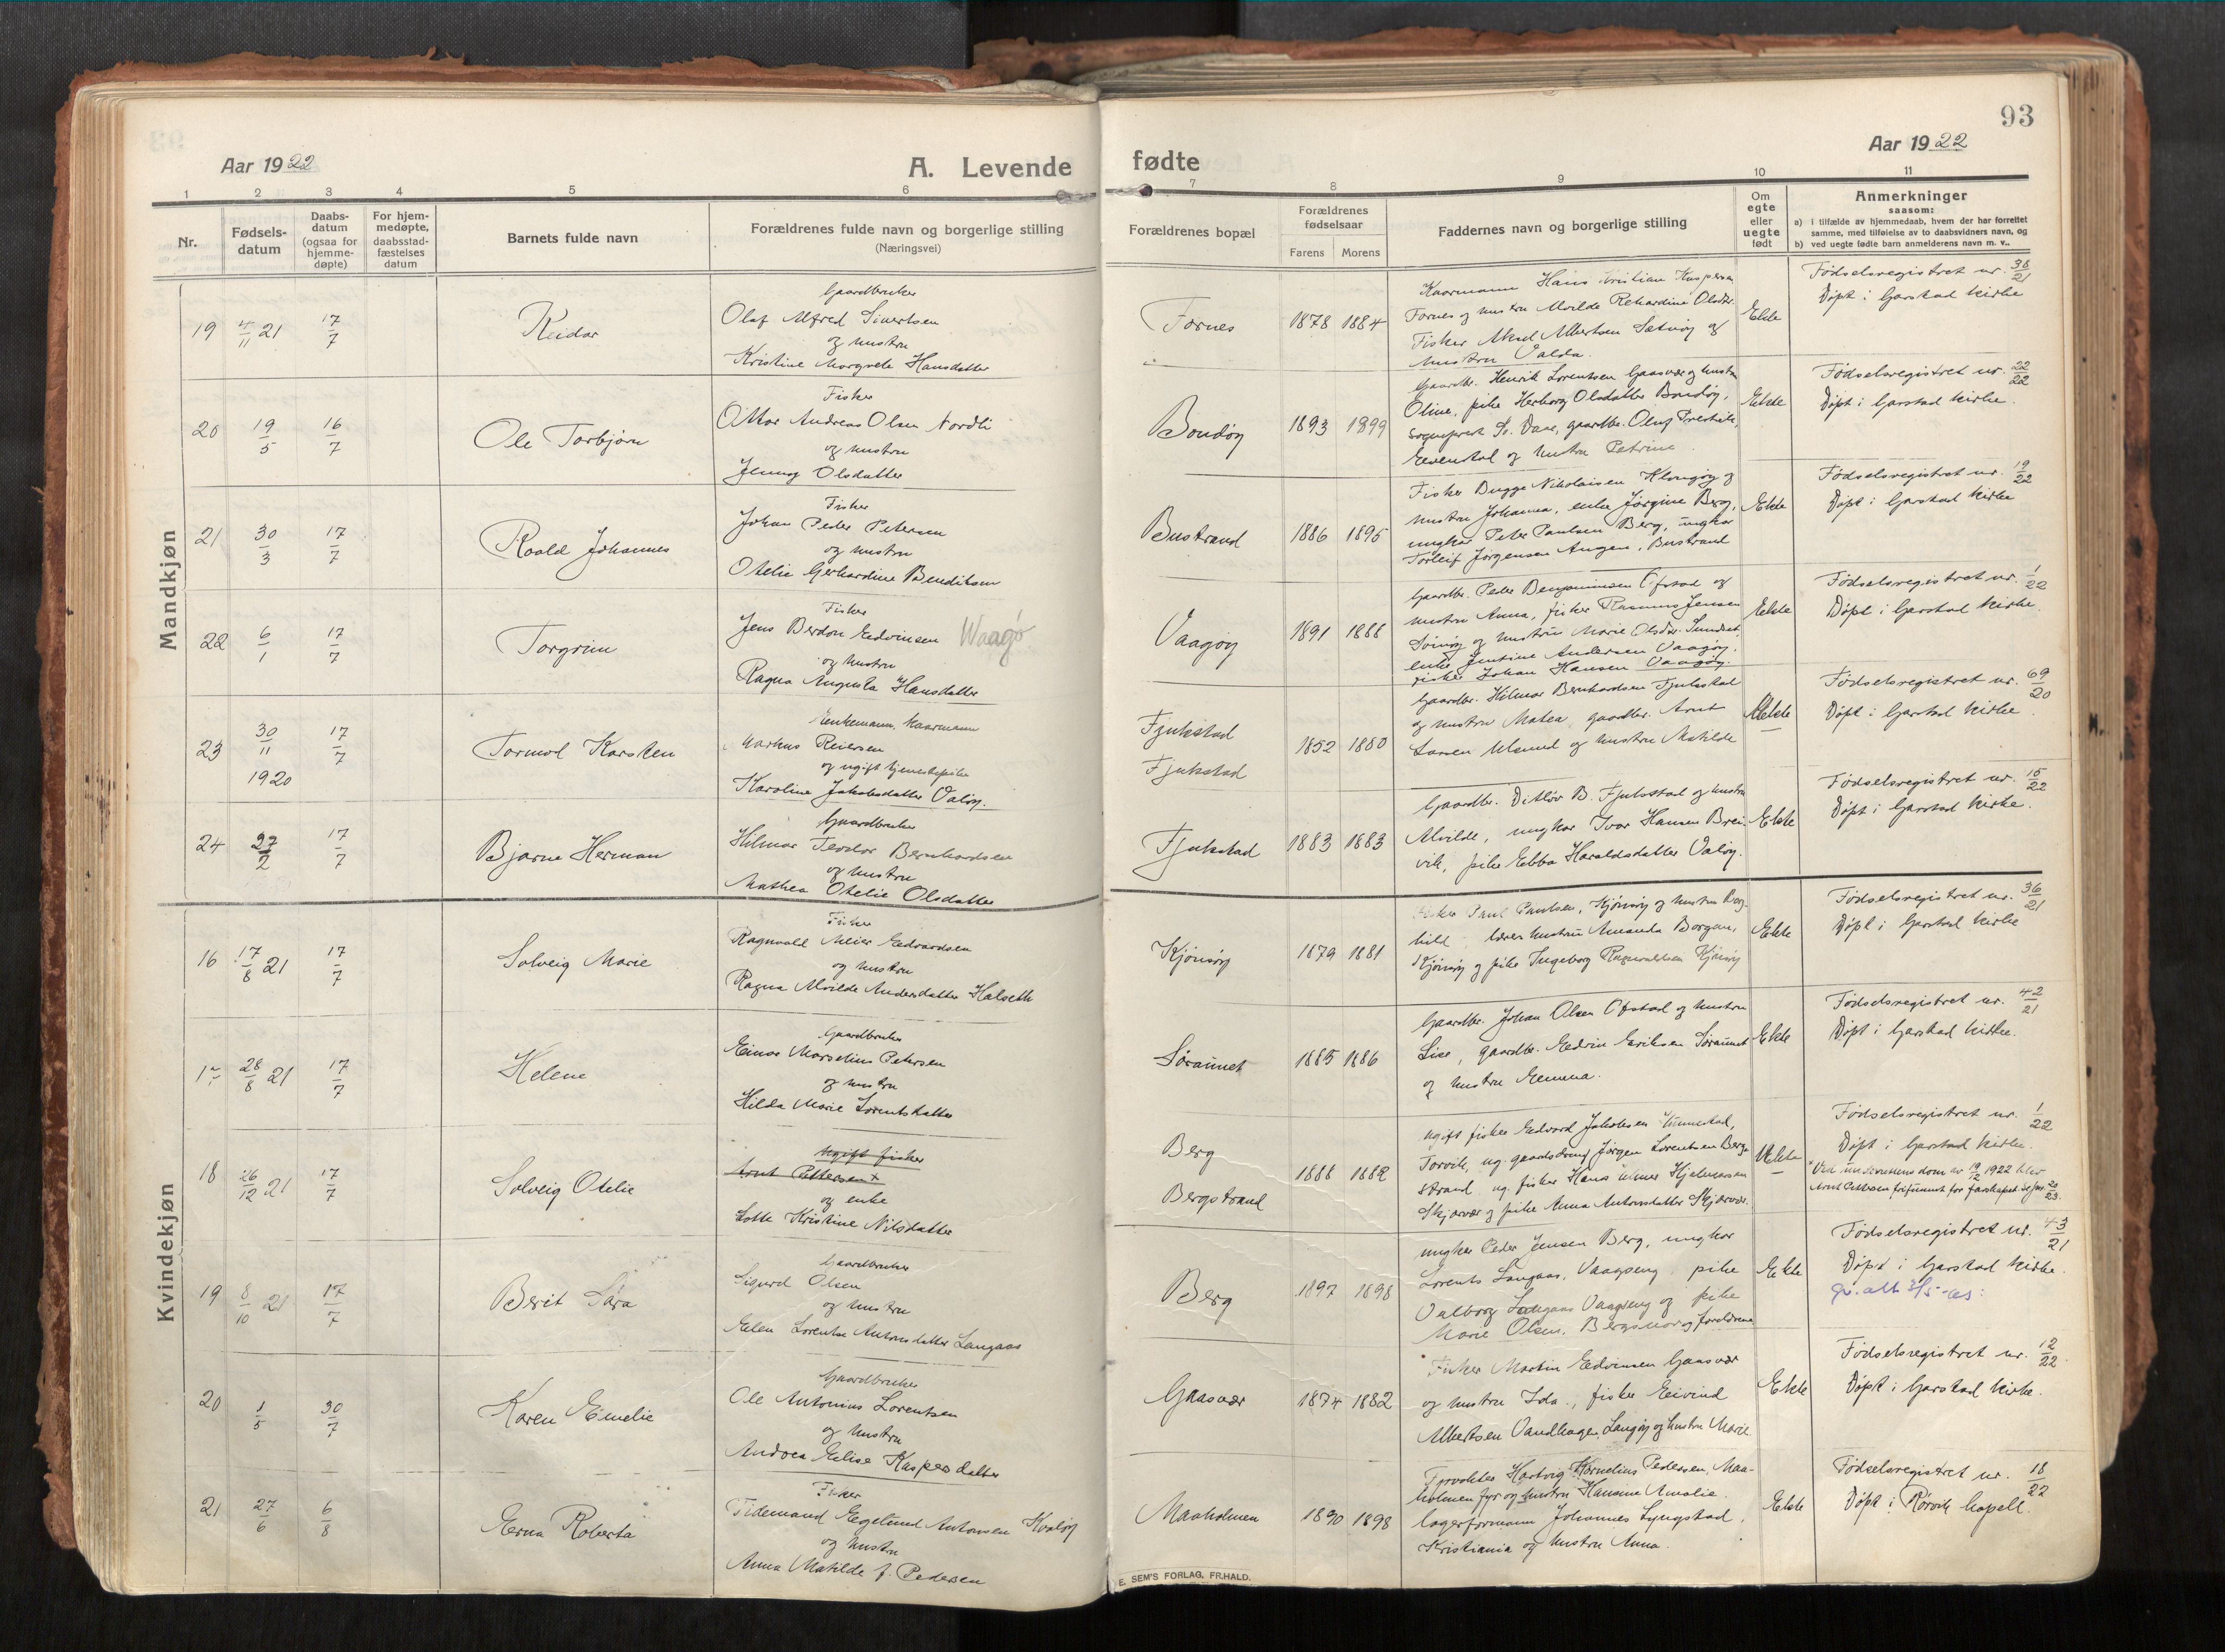 93
Aar 1922
A. Levende
fødte
Aar 1922
1 2 3 4 5 6 7 8 9 10 11
Nr.
Fødsels-
datum
Daabs-
datum
(ogsaa for
hjemme-
døpte)
For hjem-
medøpte,
daabsstad-
fæstelses
datum
Barnets fulde navn
Forældrenes fulde navn og borgerlige stilling
(Næringsvei)
Forældrenes bopæl
Forældrenes
fødselsaar
Farens Morens
Faddernes navn og borgerlige stilling
Om
egte
eller
uegte
født
Anmerkninger
saasom:
a) i tilfælde av hjemmedaab, hvem der har forrettet
samme, med tilføielse av to daabsvidners navn, og
b) ved uegte fødte barn anmelderens navn m. v..
Mandkjøn
19
4/11 21
17/7
Reidar
Gaardbruker
Olaf Alfred Sivertsen
og hustru
Kristine Margrete Hansdatter
Fornes
1878 1884
Hans Kristian
Fornes og hustru Olsdtr.
Fisker Albertsen og
hustru Valda.
Ekte
Fødselsregistret nr. 38/21
Døpt i Garstad kirke
20
19/5
16/7
Ole Torbjørn
Fisker
Ottar Andreas Olsen Nordli
og hustru
Jenny Olsdatter
Bondøy
1893 1899
Gaardbr. Henrik Lorentsen Gaasvær og hustru
Oline, pike Herborg Olsdatter Bondøy,
sogneprest gaardbr. Oluf
og hustru Petrine
Ekte
Fødselsregistret nr. 22/22
Døpt i Garstad kirke.
21
30/3
17/7
Roald Johannes
Fisker
Johan Peder Petersen
og hustru
Otelie Gerhardine Bendiksen
Bustrand
1886 1895
Fisker Bugge Nikolaisen og
hustru Johanna, enke Jørgine Berg,
ungkar Peter Paulsen Berg, ungkar
Torleif Jørgensen Bustrand
Ekte
Fødselsregistret nr. 19/22
Døpt i Garstad kirke
22
6/1
17/7
Torgrim
Fisker
Jens Berdon Edvinsen Waagø
og hustru
Ragna Augusta Hansdatter
Vaagøy
1891 1888
Gaardbr. Peder Benjaminsen Ofstad og
hustru Anna, fisker Rasmus Jensen
og hustru Marie Olsdtr.
enke Jentine Andersen Vaagøy.
fisker Johan Hansen Vaagøy.
Ekte
Fødselsregistret nr. 1/22
Døpt i Garstad kirke.
23
30/11
1920
17/7
Tormod Karsten
Enkemann,
Markus Reiersen
og ugift tjenestepike
Karoline Jakobsdatter Valøy.
Fjukstad
Fjukstad
1852 1880
Gaardbr. Hilmar Bernhardsen Fjukstad
og hustru Matea, gaardbr. Arnt
Larsen og hustru Matilde
Uekte
Fødselsregistret nr. 69/20
Døpt i Garstad kirke
24
27/2
17/7
Bjarne Herman
Gaardbruker
Hilmar Teodor Bernhardsen
og hustru
Mathea Otelie Olsdatter
Fjukstad
1883 1883
Gaardbr. Ditløv B. Fjukstad og hustru
Alvilde, ungkar Ivar Hansen Brei-
vik, pike Ebba Haraldsdatter Valøy.
Ekte
Fødselsregistret nr. 15/22
Døpt i Garstad kirke.
Kvindekjøn
16
17/8 21
17/7
Solveig Marie
Fisker
Ragnvald Meier Edvardsen
og hustru
Ragna Alvilde Andersdatter Halseth
Kjønsøy
1879 1881
Fisker Paul Paulsen, Kjønsøy og hustru Borg-
hild, lærer hustru Amanda Borgan,
Kjønsøy og pike Ingeborg Ragnvaldsen Kjønsøy
Ekte
Fødselsregistret nr. 36/21
Døpt i Garstad kirke
17
28/8 21
17/7
Helene
Gaardbruker
Einar Marselius Petersen
og hustru
Hilda Marie Lorentsdatter
Søraunet
1885 1886
Gaardbr. Johan Olsen Ofstad og hustru
Lise, gaardbr. Edvin Eriksen Søraunet
og hustru Emma.
Ekte
Fødselsregistret nr. 42/21
Døpt i Garstad kirke.
18
26/12 21
17/7
Solveig Otelie
Ugift fisker
Arnt Pettersen x
og enke
Lotte Kristine Nilsdatter
Berg
Bergstrand
1888 1882
Ugift fisker Edvard Jakobsen
Torvik, ug. gaardsdreng Jørgen Lorentsen Berg-
strand ug. fisker Hans Hjelmersen
Skjærvær og pike Anna Antonsdatter Skjærvær.
Uekte
Fødselsregistret nr. 1/22
Døpt i Garstad kirke.
x Ved underrettens dom av 19/12 1922 blev
Arnt Pettersen frifunnet for farskapet
19
8/10 21
17/7
Berit Sara
Gaardbruker
Sigurd Olsen
og hustru
Elen Lorentse Antonsdatter Langaas
Berg
1897 1898
ungkar Peder Jensen Berg, ungkar
Lorents Langaas, Vaagseng, pike
Valborg Langaas Vaagseng og pike
Marie Olsen, og foreldrene
Ekte
Fødselsregistret nr. 43/21
Døpt i Garstad kirke.
20
1/5
30/7
Karen Emelie
Gaardbruker
Ole Antonius Lorentsen
og hustru
Andrea Elise Kaspersdatter
Gaasvær
1874 1882
Fisker Martin Edvinsen Gaasvær
og hustru Ida, fisker Eivind
Albertsen Langøy og hustru Marie
Ekte
Fødselsregistret nr. 12/22
Døpt i Garstad kirke.
21
27/6
6/8
Erna Roberta
Fisker
Tidemand Egelund Antonsen Kvaløy
og hustru
Anna Matilde f. Pedersen
Maaholmen
1890 1898
Fyrvokter Hartvig Kornelius Pedersen, Maa-
holmen fyr og hustru Hansine Amalie.
lagerformann Johannes Lyngstad,
Kristiania og hustru Anna.
Ekte
Fødselsregistret nr. 18/22
Døpt i Rørvik kapell.
E. SEM'S FORLAG, FR.HALD.